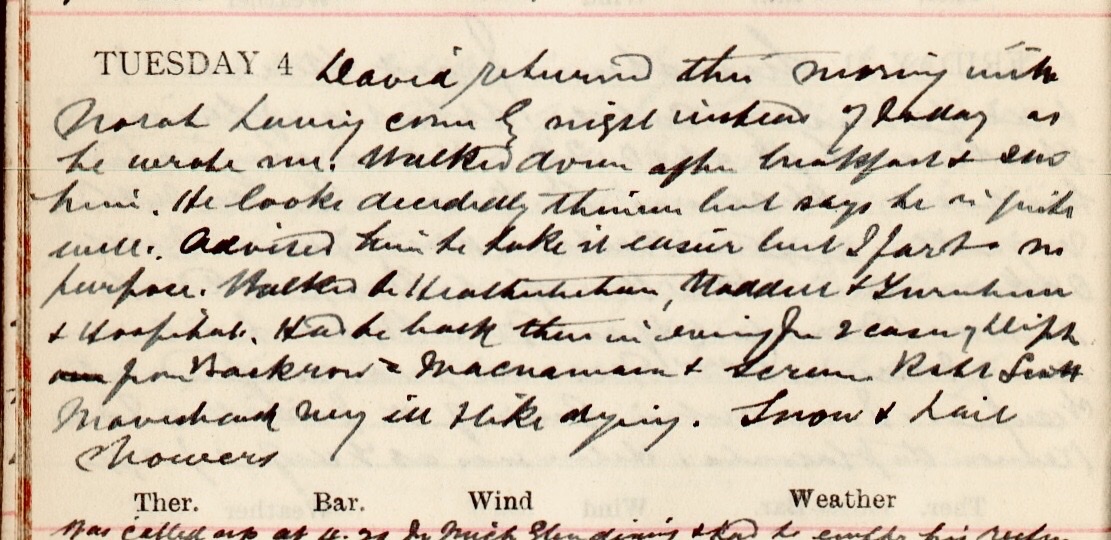 TUESDAY 4 David returned this morning with
Norah having come by night instead of today as
he wrote me. Walked down after breakfast & saw
him. He looks decidedly thinner but says he is quite
well. Advised him to take it easier but I fear to no
purpose. Walked to Heatherbetham, Waddell & Turnbull
& Hospital. Had to back there in evening for 2 cases of Diphth
from Backrow = Macnamara & Serum. Robt Scott
very ill & like dying. Snow & hail
Showers
Ther. Bar. Wind Weather
Was called up at 4.20 to Mick Glendinning & had to